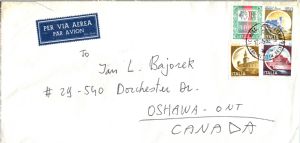 PER VIA AEREA
PAR AVION
To
Ian L. Bajorek
# 29-540 Dorchester Dr.
OSHAWA - ONT
CANADA
ITALIA
ITALIA